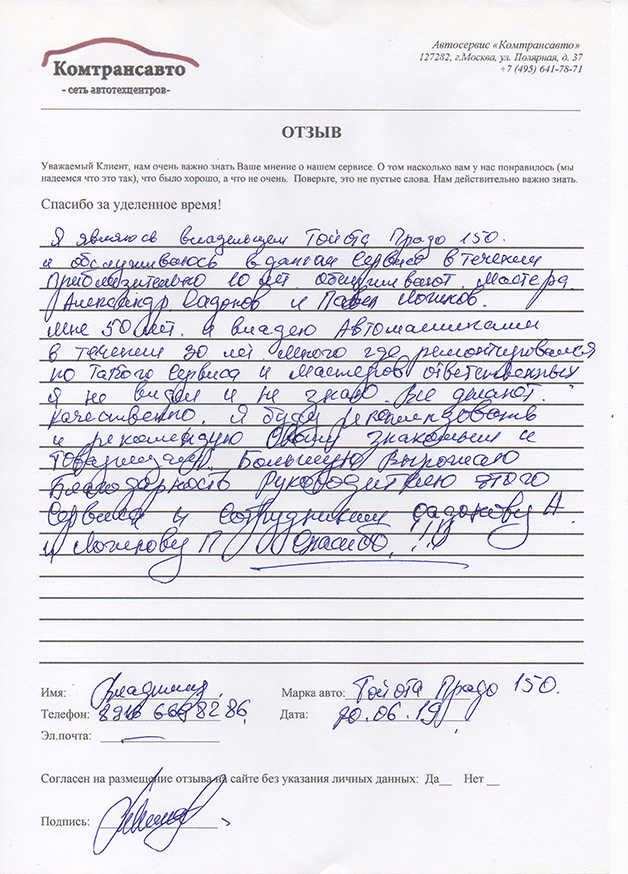 Комтрансавто
- сеть автотехцентров-
Автосервис «Комтрансавто»
127282, г.Москва, ул. Полярная, д. 37
+7 (495) 641-78-71
ОТЗЫВ
Уважаемый Клиент, нам очень важно знать Ваше мнение о нашем сервисе. О том насколько вам у нас понравилось (мы
надеемся что это так), что было хорошо, а что не очень. Поверьте, это не пустые слова. Нам действительно важно знать.
Спасибо за уделенное время!
Я являюсь владельцем Тойота Прадо 150.
и обслуживаюсь в данном Сервисе в течении
Приблизительно 10 лет. обслуживают мастера
Александр Садонов и Павел Логинов.
мне 50 лет. и владею Автомашинами
в течении 30 лет. много где ремонтировался
но такого Сервиса и мастеров ответственных
я не видел и не знаю. Все делают
качественно. Я буду рекомендовать
и рекомендую Своим знакомым и
товарищам. Большую Выражаю
Благодарность Руководителю этого
Сервиса и Сотрудникам Садонову А.
и Логинову П. Спасибо!!!
Имя: Владимир. Марка авто: Тойота Прадо 150.
Телефон: 8916 6698286 Дата: 20.06.19
Эл.почта:
Согласен на размещение отзыва на сайте без указания личных данных: Да__ Нет __
Подпись: